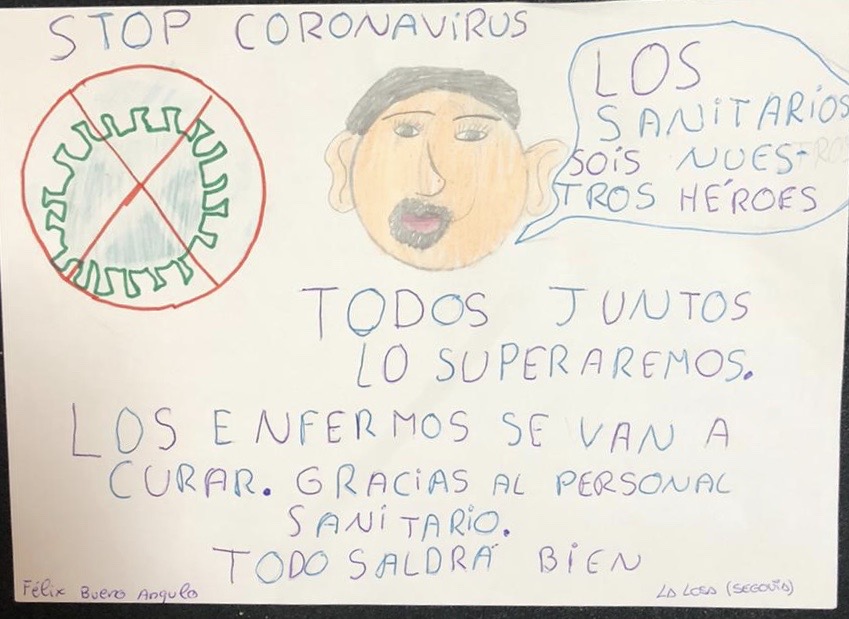 STOP CORONAVIRUS
LOS
SANITARIOS
SOIS NUES-
TROS HÉROES
TODOS JUNTOS
LO SUPERAREMOS.
LOS ENFERMOS SE VAN A
CURAR. GRACIAS AL PERSONAL
SANITARIO.
TODO SALDRÁ BIEN
Félix Bueno Angulo
LA LOSA (SEGOVIA)